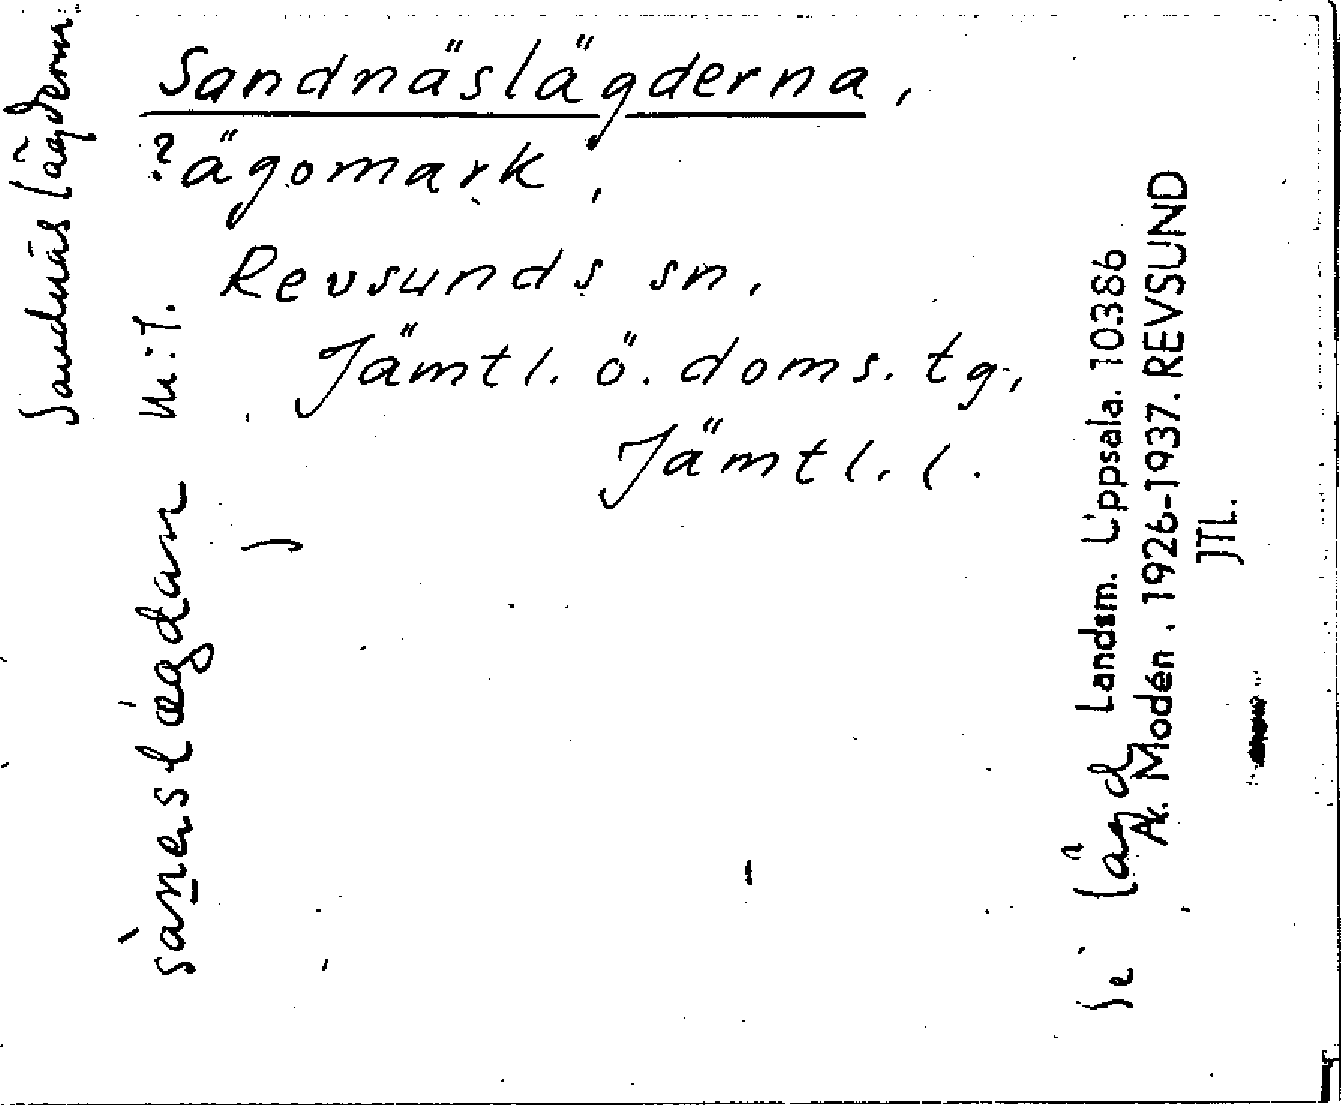 Sandnäslägderna,
?ägomark,
Revsunds sn,
Jämtl. ö. doms. tg.,
Jämtl. l.
Sandnäslägderna
sàneslægdan m.f.
Se lägd
Landsm. Uppsala. 10386
Ak. Modén. 1926-1937. REVSUND
JTL.